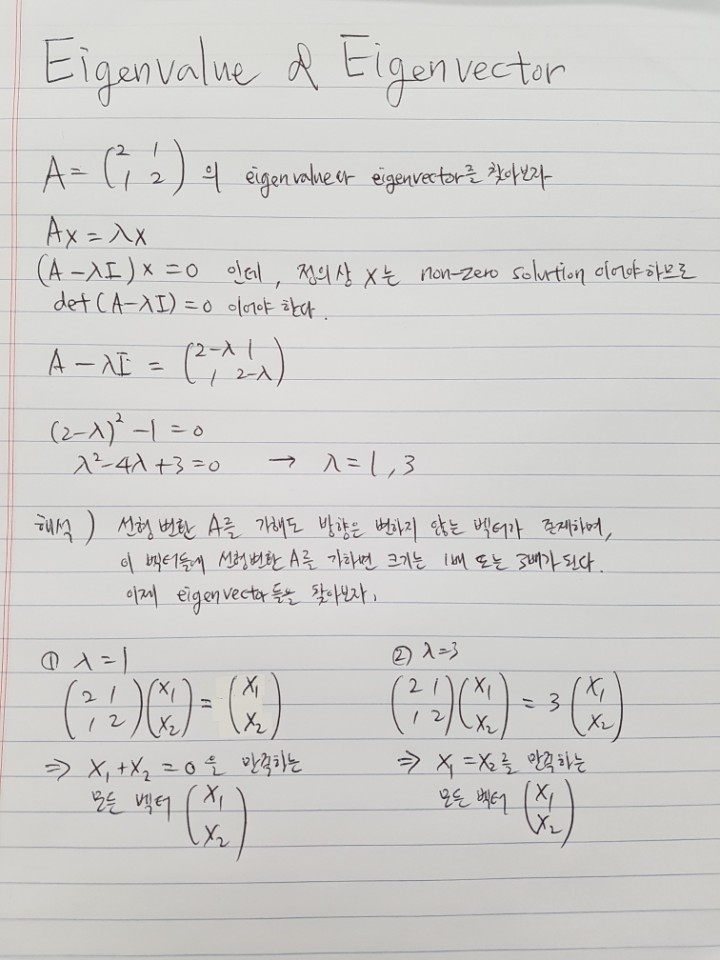 Eigenvalue & Eigenvector
A = (2 1
1 2) 의 eigenvalue와 eigenvector를 찾아보자
Ax = λx
(A - λI)x = 0 인데, 정의상 x는 non-zero solution 이어야하므로
det(A-λI) = 0 이어야 한다.
A - λI = (2-λ 1
1 2-λ)
(2-λ)² - 1 = 0
λ² - 4λ + 3 = 0 → λ = 1, 3
해석) 선형변환 A를 가해도 방향은 변하지 않는 벡터가 존재하며,
이 벡터들에 선형변환 A를 가하면 크기는 1배 또는 3배가 된다.
이제 eigenvector들을 찾아보자.
① λ = 1
(2 1
1 2)(x₁
x₂) = (x₁
x₂)
⇒ x₁ + x₂ = 0 을 만족하는
모든 벡터 (x₁
x₂)
② λ = 3
(2 1
1 2)(x₁
x₂) = 3(x₁
x₂)
⇒ x₁ = x₂를 만족하는
모든 벡터 (x₁
x₂)